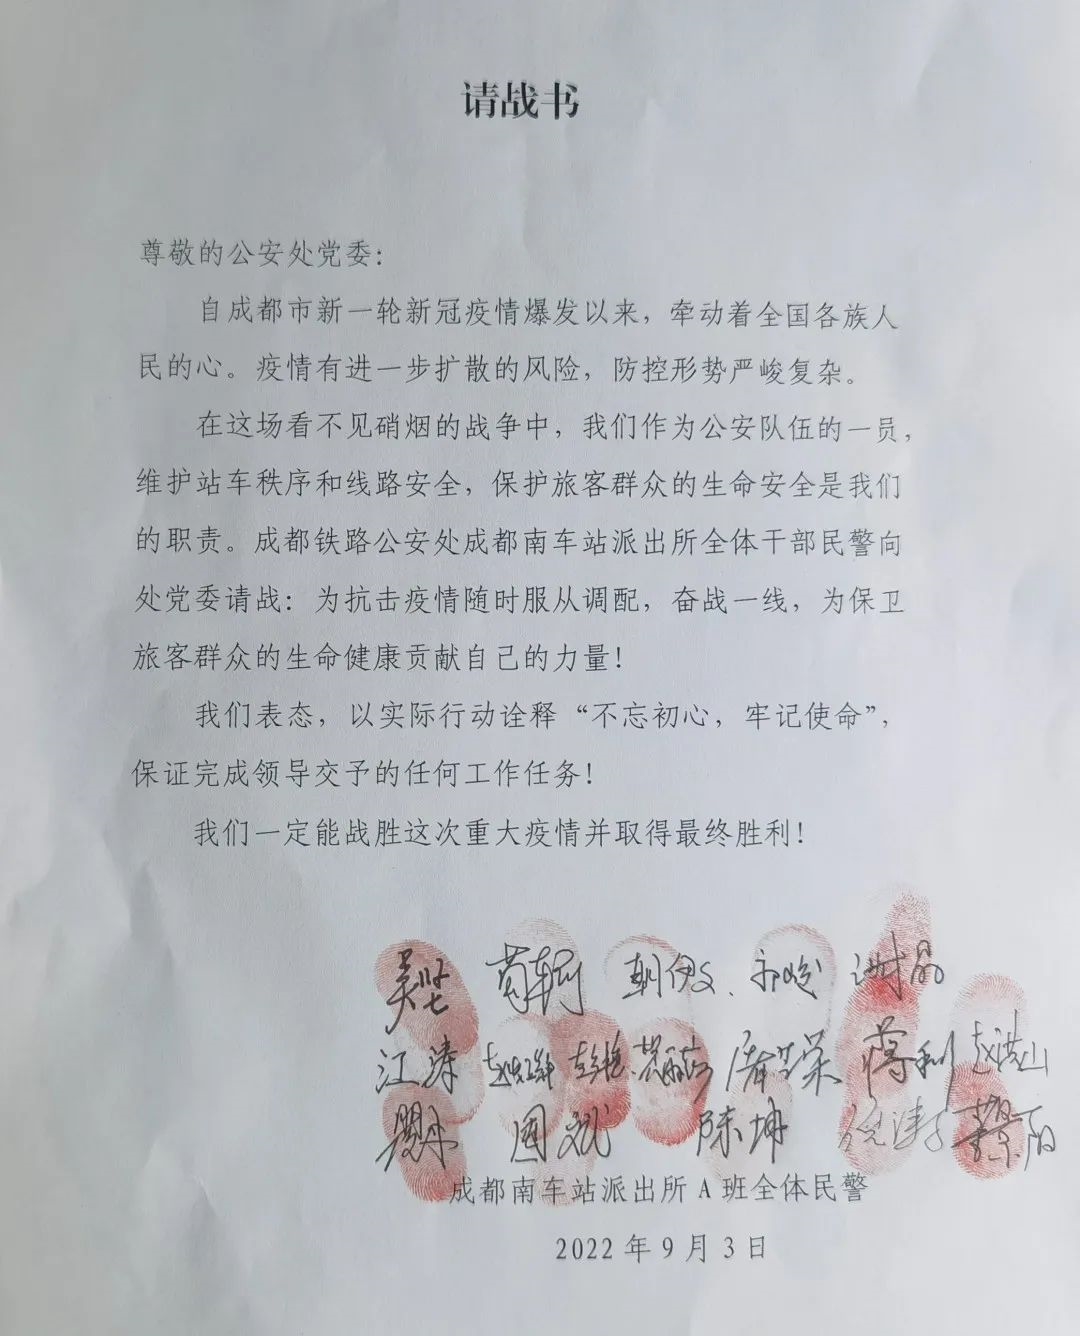 请战书
尊敬的公安处党委：
自成都市新一轮新冠疫情爆发以来，牵动着全国各族人
民的心。疫情有进一步扩散的风险，防控形势严峻复杂。
在这场看不见硝烟的战争中，我们作为公安队伍的一员，
维护站车秩序和线路安全，保护旅客群众的生命安全是我们
的职责。成都铁路公安处成都南车站派出所全体干部民警向
处党委请战：为抗击疫情随时服从调配，奋战一线，为保卫
旅客群众的生命健康贡献自己的力量！
我们表态，以实际行动诠释“不忘初心，牢记使命”，
保证完成领导交予的任何工作任务！
我们一定能战胜这次重大疫情并取得最终胜利！
吴坚
江涛 蒋利 赵洪山
陈坤
成都南车站派出所 A 班全体民警
2022 年 9 月 3 日